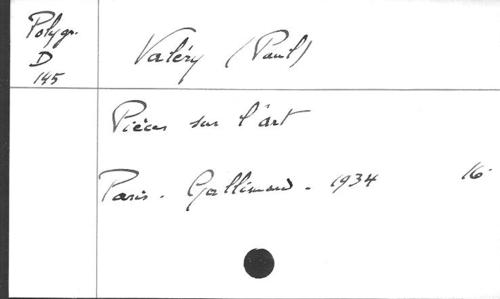 Polygr.
D
145
Valéry (Paul)
Pièces sur l'art
Paris. Gallimard. 1934 16.